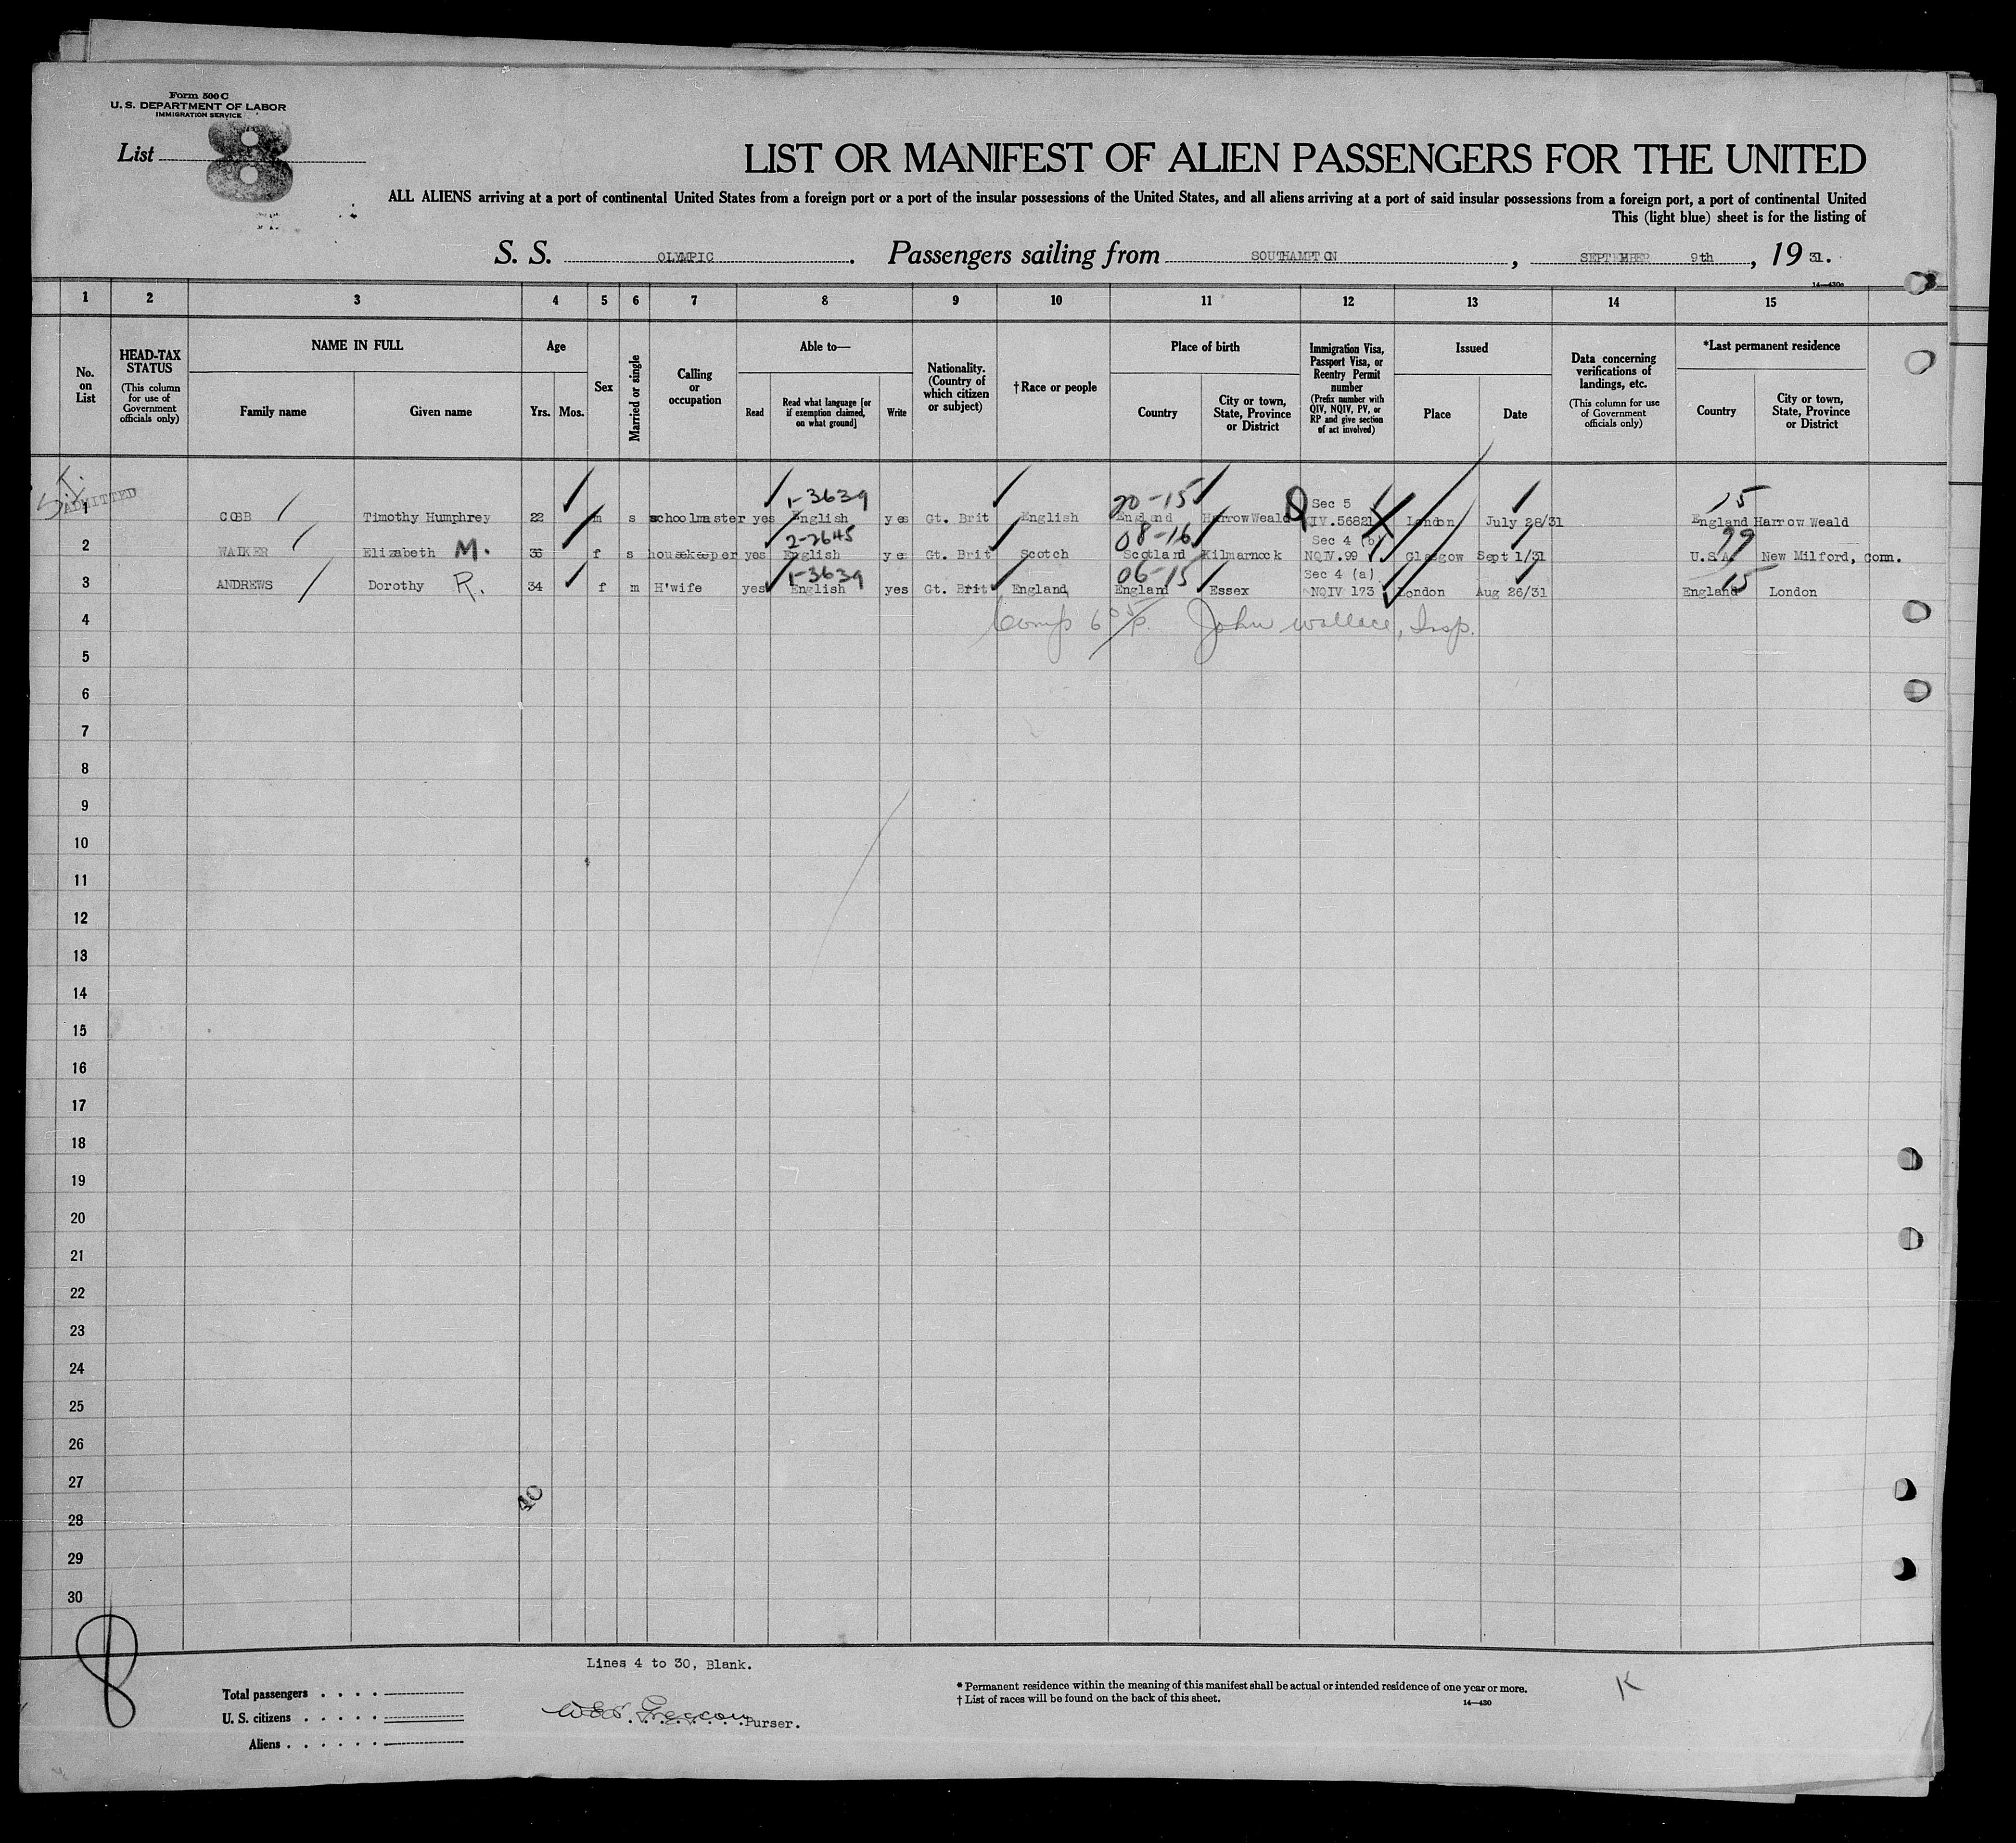 Form 500 C
U. S. DEPARTMENT OF LABOR
IMMIGRATION SERVICE
List 8
LIST OR MANIFEST OF ALIEN PASSENGERS FOR THE UNITED
ALL ALIENS arriving at a port of continental United States from a foreign port or a port of the insular possessions of the United States, and all aliens arriving at a port of said insular possessions from a foreign port, a port of continental United
This (light blue) sheet is for the listing of
S. S. OLYMPIC. Passengers sailing from SOUTHAMPTON, SEPTEMBER 9th, 19 31.
14—430a
1 2 3 4 5 6 7 8 9 10 11 12 13 14 15
No. on List
HEAD-TAX STATUS (This column for use of Government officials only)
NAME IN FULL
Family name
Given name
Age
Yrs. Mos.
Sex
Married or single
Calling or occupation
Able to—
Read
Read what language [or if exemption claimed, on what ground]
Write
Nationality. (Country of which citizen or subject)
† Race or people
Place of birth
Country
City or town, State, Province or District
Immigration Visa, Passport Visa, or Reentry Permit number (Prefix number with QIV, NQIV, PV, or RP and give section of act involved)
Issued
Place
Date
Data concerning verifications of landings, etc. (This column for use of Government officials only)
*Last permanent residence
Country
City or town, State, Province or District
S.I.
ADMITTED
1-3639 20-15 Sec 5 15
1 COBB Timothy Humphrey 22 m s schoolmaster yes English yes Gt. Brit English England Harrow Weald QIV.56821 London July 28/31 England Harrow Weald
2-2645 08-16 Sec 4 (b) 99
2 WALKER Elizabeth M. 36 f s housekeeper yes English yes Gt. Brit Scotch Scotland Kilmarnock NQIV.99 Glasgow Sept 1/31 U.S.A. New Milford, Conn.
1-3639 06-15 Sec 4 (a) 15
3 ANDREWS Dorothy R. 34 f m H'wife yes English yes Gt. Brit England England Essex NQIV 173 London Aug 26/31 England London
4 Comp 6 05/p. John Wallace, Insp.
5
6
7
8
9
10
11
12
13
14
15
16
17
18
19
20
21
22
23
24
25
26
27
40
28
29
30
8
Lines 4 to 30, Blank.
Total passengers . . . .
U. S. citizens . . . . .
Aliens . . . . . .
Purser.
* Permanent residence within the meaning of this manifest shall be actual or intended residence of one year or more.
† List of races will be found on the back of this sheet.
14—430
K